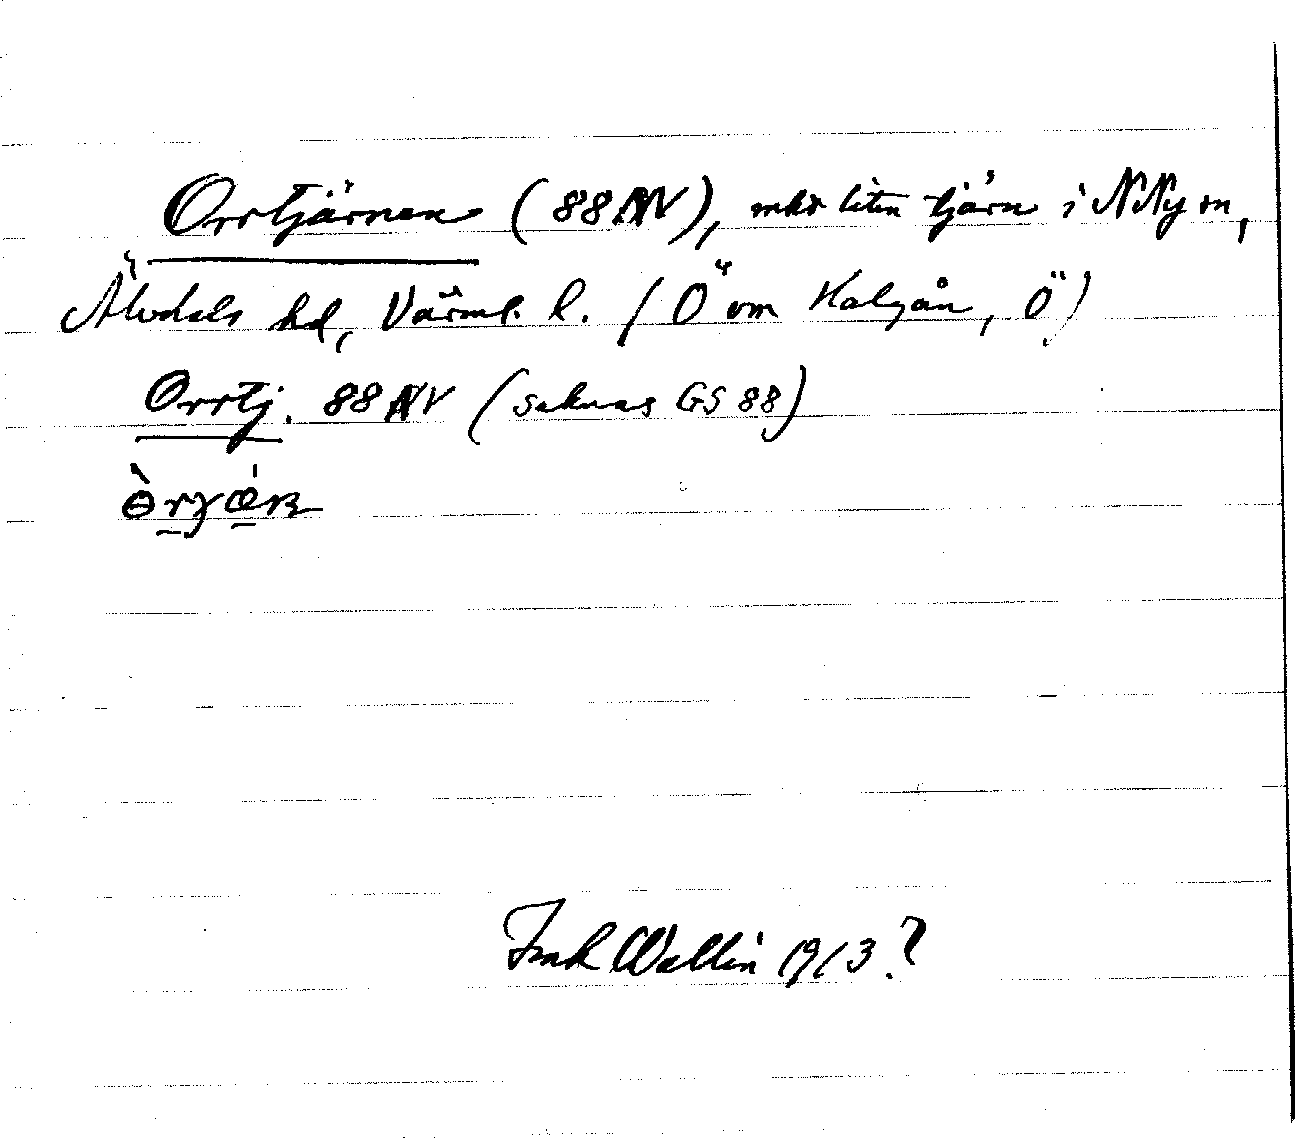 Orrtjärnen (88NV), mkt liten tjärn i N Ny sn,
Älvdals hd, Värml. l. (Ö om Halgån, Ö)
Orrtj. 88 NV (saknas GS 88)
Wallin 1913?